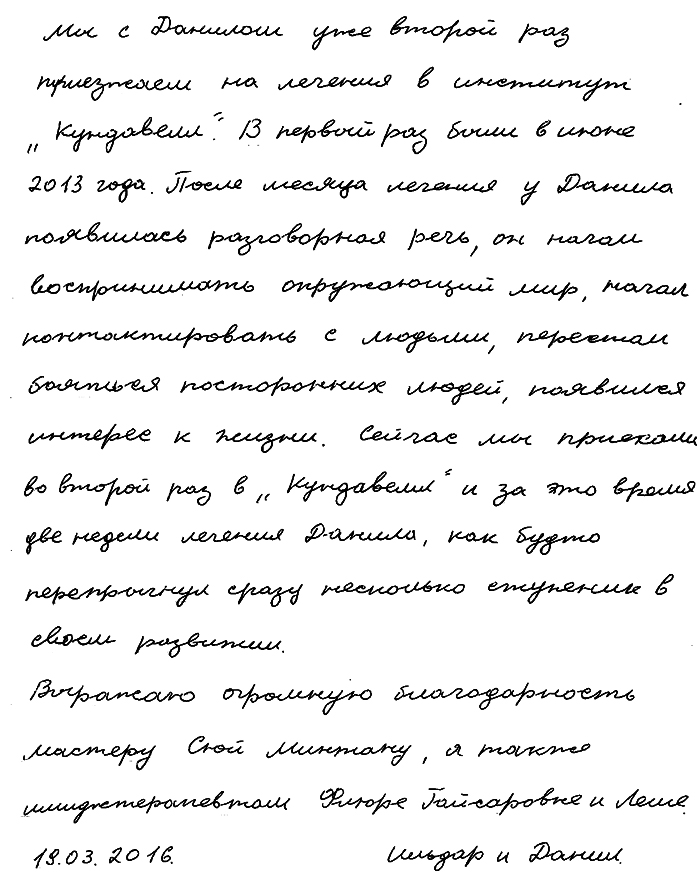 Мы с Данилом уже второй раз
приезжаем на лечения в институт
„Кундавелл". В первый раз были в июне
2013 года. После месяца лечения у Данила
появилась разговорная речь, он начал
воспринимать окружающий мир, начал
контактировать с людьми, перестал
бояться посторонних людей, появился
интерес к жизни. Сейчас мы приехали
во второй раз в „Кундавелл" и за это время
две недели лечения Данила, как будто
перепрыгнул сразу несколько ступеник в
своем развитии.
Выражаю огромную благодарность
мастеру Сюй Минтану, а также
имиджтерапевтам Флюре Гайсаровне и Леше.
19.03.2016. Ильдар и Данил.